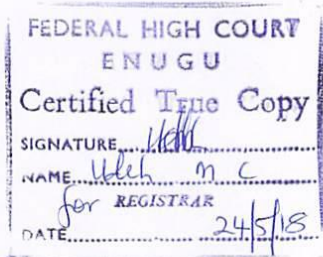 FEDERAL HIGH COURT
ENUGU
Certified True Copy
SIGNATURE
NAME Udeh N C
for REGISTRAR
DATE 24/5/18